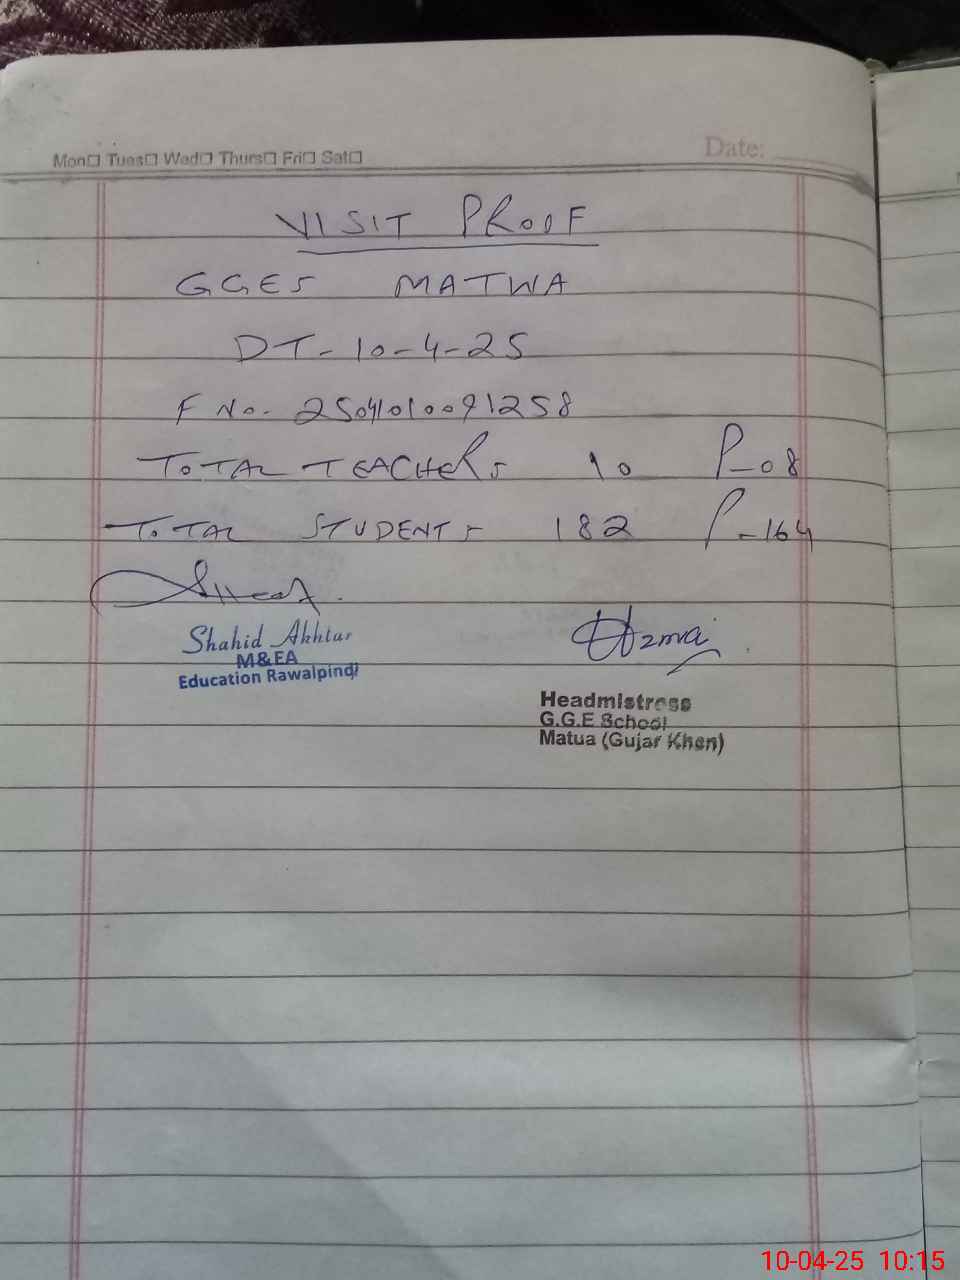 Mon☐ Tues☐ Wed☐ Thurs☐ Fri☐ Sat☐ Date:
VISIT PROOF
GGES MATWA
DT-10-4-25
F No. 2504101009 1258
TOTAL TEACHERS 10 P-08
TOTAL STUDENTS 182 P-164
Shahid Akhtar
M&EA
Education Rawalpindi
Uzma
Headmistress
G.G.E School
Matua (Gujar Khan)
10-04-25 10:15